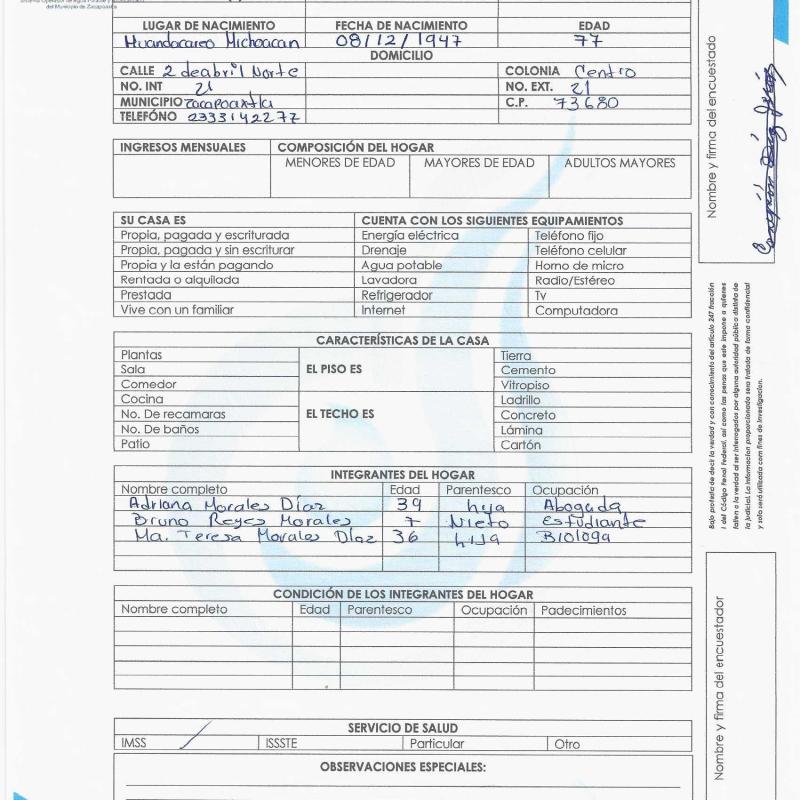 del Municipio de Zacapoaxtla
LUGAR DE NACIMIENTO FECHA DE NACIMIENTO EDAD
Huandacareo Michoacan 08/12/1947 77
DOMICILIO
CALLE 2 de abril Norte COLONIA Centro
NO. INT 21 NO. EXT. 21
MUNICIPIO Zacapoaxtla C.P. 73680
TELEFÓNO 2333142277
INGRESOS MENSUALES COMPOSICIÓN DEL HOGAR
MENORES DE EDAD MAYORES DE EDAD ADULTOS MAYORES
SU CASA ES CUENTA CON LOS SIGUIENTES EQUIPAMIENTOS
Propia, pagada y escriturada Energía eléctrica Teléfono fijo
Propia, pagada y sin escriturar Drenaje Teléfono celular
Propia y la están pagando Agua potable Horno de micro
Rentada o alquilada Lavadora Radio/Estéreo
Prestada Refrigerador Tv
Vive con un familiar Internet Computadora
CARACTERÍSTICAS DE LA CASA
Plantas Tierra
Sala EL PISO ES Cemento
Comedor Vitropiso
Cocina Ladrillo
No. De recamaras EL TECHO ES Concreto
No. De baños Lámina
Patio Cartón
INTEGRANTES DEL HOGAR
Nombre completo Edad Parentesco Ocupación
Adriana Morales Díaz 39 hija Abogada
Bruno Reyes Morales 7 Nieto Estudiante
Ma. Teresa Morales Díaz 36 hija Biologa
CONDICIÓN DE LOS INTEGRANTES DEL HOGAR
Nombre completo Edad Parentesco Ocupación Padecimientos
SERVICIO DE SALUD
IMSS / ISSSTE Particular Otro
OBSERVACIONES ESPECIALES:
Nombre y firma del encuestado
Bajo protesta de decir la verdad y con conocimiento del artículo 247 fracción
I del Código Penal Federal, así como las penas que este impone a quienes
falten a la verdad al ser interrogados por alguna autoridad pública distinta de
la judicial. La información proporcionada sera tratada de forma confidencial
y solo será utilizada con fines de investigación.
Nombre y firma del encuestador